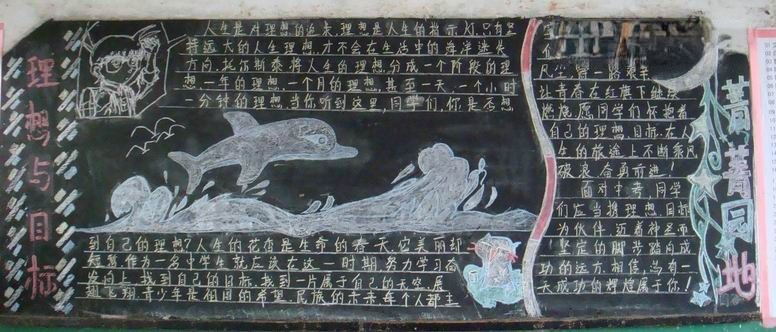 理想与目标
人生是对理想的追求,理想是人生的指示灯,只有坚
持远大的人生理想,才不会在生活中的海洋迷失
方向,托尔斯泰将人生的理想分成一个阶段的理
想,一年的理想,一个月的理想,甚至一天,一个小时
一分钟的理想,当你听到这里,同学们,你是否想
到自己的理想?人生的花季是生命的春天,它美丽却
短暂,作为一名中学生就应该在这一时期,努力学习,奋
发向上,找到自己的目标,找到一片属于自己的天空,展
翅飞翔,青少年是祖国的希望,民族的未来,每个人都主
让青春在红旗下继续
燃烧,愿同学们怀抱着
自己的理想目标,在人
生的旅途上不断乘风
破浪,奋勇前进!
面对中考,同学
们应当携理想,目标
为伙伴,迈着神圣而
坚定的脚步踏向成
功的远方,相信,总有一
天成功的辉煌属于你!
菁菁园地